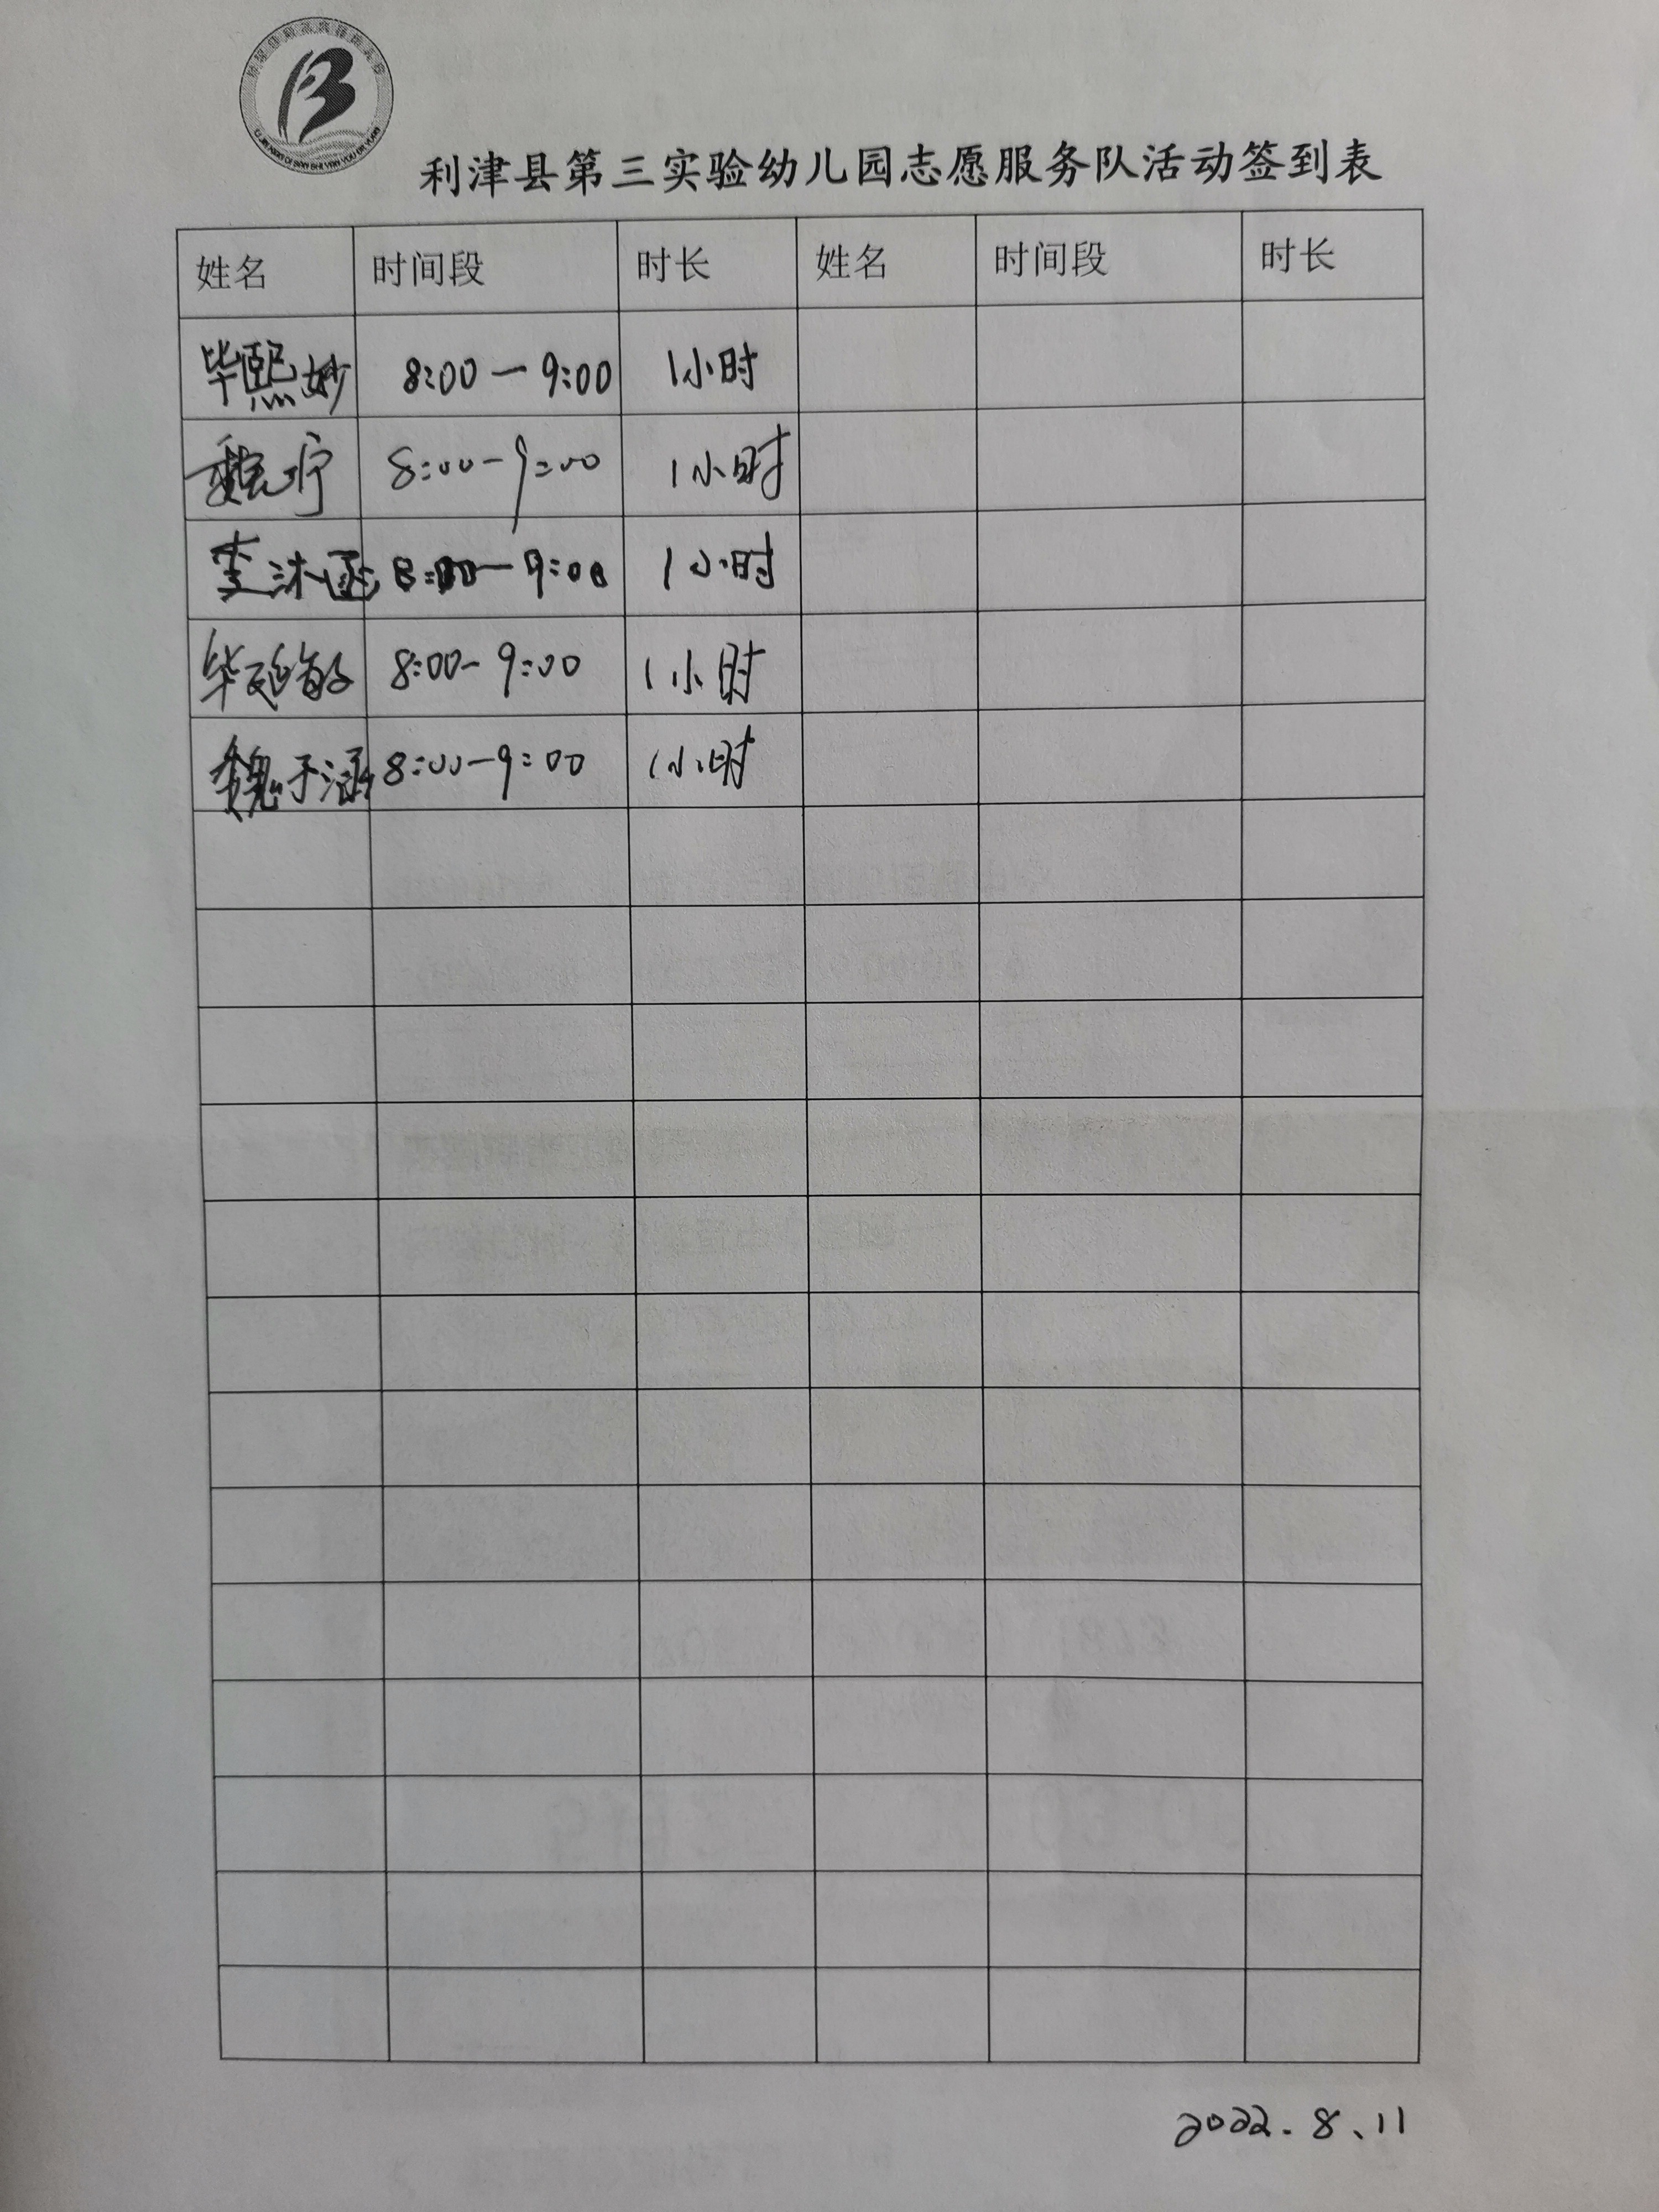 利津县第三实验幼儿园志愿服务队活动签到表
姓名 时间段 时长 姓名 时间段 时长
毕熙妙 8:00—9:00 1小时
魏宁 8:00-9:00 1小时
李沐函 8:00—9:00 1小时
毕延 8:00-9:00 1小时
魏子涵 8:00-9:00 1小时
2022.8、11